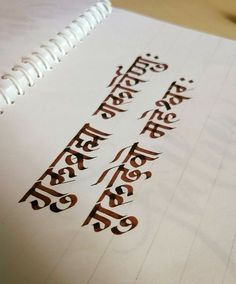 गुरूब्रह्मा गुरूर्विष्णुः
गुरूर्देवो महेश्वरः